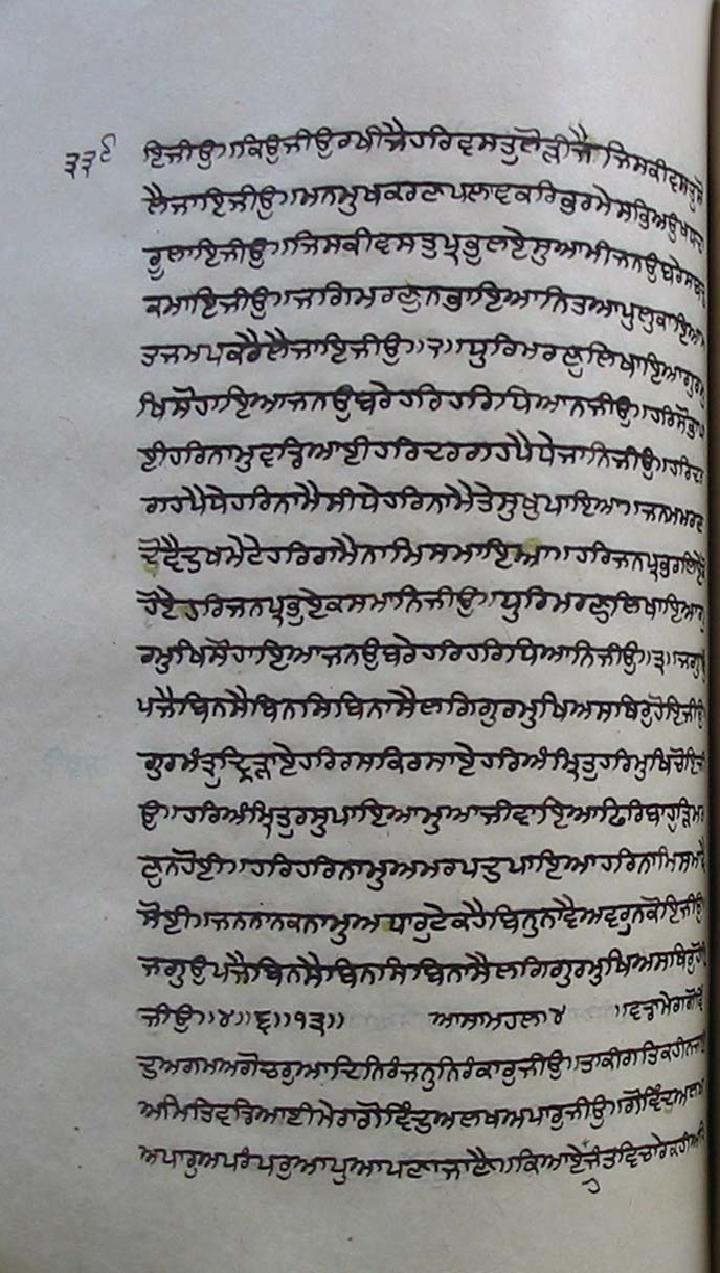 ੩੩੬ ਇਜੀਉ॥ਕਿਉਜੀਉਰਖੀਜੈਹਰਿਵਸਤੁਲੋੜੀਜੈਜਿਸਕੀਵਸਤੁਸੋ
ਲੈਜਾਇਜੀਉ॥ਮਨਮੁਖਕਰਣਪਲਾਵਕਰਿਭਰਮੇਸਭਿਅਉਖਧ
ਰੂਲਾਇਜੀਉ॥ਜਿਸਕੀਵਸਤੁਪ੍ਰਭੁਲਏਸੁਆਮੀਜਨਉਬਰੇਸਬਦੁ
ਕਮਾਇਜੀਉ॥ਜਗਿਮਰਣੁਨਭਾਇਆਨਿਤਆਪੁਲੁਕਾਇਆਮ
ਤਜਮਪਕਰੈਲੈਜਾਇਜੀਉ॥੨॥ਧੁਰਿਮਰਣੁਲਿਖਾਇਆਗੁਰਮੁ
ਖਿਸੋਹਾਇਆਜਨਉਬਰੇਹਰਿਹਰਿਧਿਆਨਜੀਉ॥ਹਰਿਸੋਭਾਪਾ
ਈਹਰਿਨਾਮੁਵਡਿਆਈਹਰਿਦਰਗਹਪੈਧੇਜਾਨਿਜੀਉ॥ਹਰਿਦਰ
ਗਹਪੈਧੇਹਰਿਨਾਮੈਸੀਧੇਹਰਿਨਾਮੈਤੇਸੁਖੁਪਾਇਆ॥ਜਨਮਮਰਣ
ਦੋਵੈਦੁਖਮੇਟੇਹਰਿਰਾਮੈਨਾਮਿਸਮਾਇਆ॥ਹਰਿਜਨਪ੍ਰਭੁਰਲਿਏਕੋ
ਹੋਏਹਰਿਜਨਪ੍ਰਭੁਏਕਸਮਾਨਿਜੀਉ॥ਧੁਰਿਮਰਣੁਲਿਖਾਇਆਗੁ
ਰਮੁਖਿਸੋਹਾਇਆਜਨਉਬਰੇਹਰਿਹਰਿਧਿਆਨਿਜੀਉ॥੩॥ਜਗੁਉ
ਪਜੈਬਿਨਸੈਬਿਨਸਿਬਿਨਾਸੈਲਗਿਗੁਰਮੁਖਿਅਸਥਿਰੁਹੋਇਜੀਉ
ਗੁਰਮੰਤ੍ਰੁਦ੍ਰਿੜਾਏਹਰਿਰਸਕਿਰਸਾਏਹਰਿਅੰਮ੍ਰਿਤੁਹਰਿਮੁਖਿਚੋਇਜੀ
ਉ॥ਹਰਿਅੰਮ੍ਰਿਤੁਰਸੁਪਾਇਆਮੁਆਜੀਵਾਇਆਫਿਰਿਬਾਹੁੜਿਮਰ
ਣੁਨਹੋਈ॥ਹਰਿਹਰਿਨਾਮੁਅਮਰਪਦੁਪਾਇਆਹਰਿਨਾਮਿਸਮਾਵੈ
ਸੋਈ॥ਜਨਨਾਨਕਨਾਮੁਅਧਾਰੁਟੇਕਹੈਬਿਨੁਨਾਵੈਅਵਰੁਨਕੋਇਜੀਉ
ਜਗੁਉਪਜੈਬਿਨਸੈਬਿਨਸਿਬਿਨਾਸੈਲਗਿਗੁਰਮੁਖਿਅਸਥਿਰੁਹੋਇ
ਜੀਉ॥੪॥੬॥੧੩॥ ਆਸਾਮਹਲਾ੪ ॥ਵਡਾਮੇਰਾਗੋਵਿੰ
ਦੁਅਗਮਅਗੋਚਰੁਆਦਿਨਿਰੰਜਨੁਨਿਰੰਕਾਰੁਜੀਉ॥ਤਾਕੀਗਤਿਕਹੀਨਜਾਈ
ਅਮਿਤਿਵਡਿਆਈਮੇਰਾਗੋਵਿੰਦੁਅਲਖਅਪਾਰੁਜੀਉ॥ਗੋਵਿੰਦੁਅਲਖ
ਅਪਾਰੁਅਪਰੰਪਰੁਆਪੁਆਪਣਾਜਾਣੈ॥ਕਿਆਏਜੰਤਵਿਚਾਰੇਕਹੀਅਹਿ